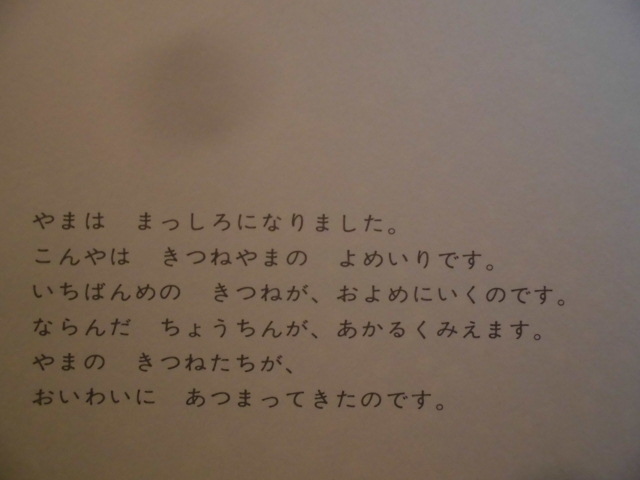 やまは　まっしろになりました。
こんやは　きつねやまの　よめいりです。
いちばんめの　きつねが、およめにいくのです。
ならんだ　ちょうちんが、あかるくみえます。
やまの　きつねたちが、
おいわいに　あつまってきたのです。